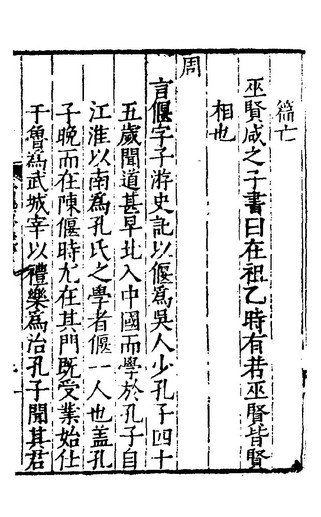 篇亡
巫賢咸之子書曰在祖乙時有若巫賢皆賢
相也
周
言偃字子游史記以偃為吳人少孔子四十
五歲聞道甚早北入中國而學於孔子自
江淮以南為孔氏之學者偃一人也盖孔
子晚而在陳偃時尤在其門既受業始仕
于魯為武城宰以禮樂為治孔子聞其君